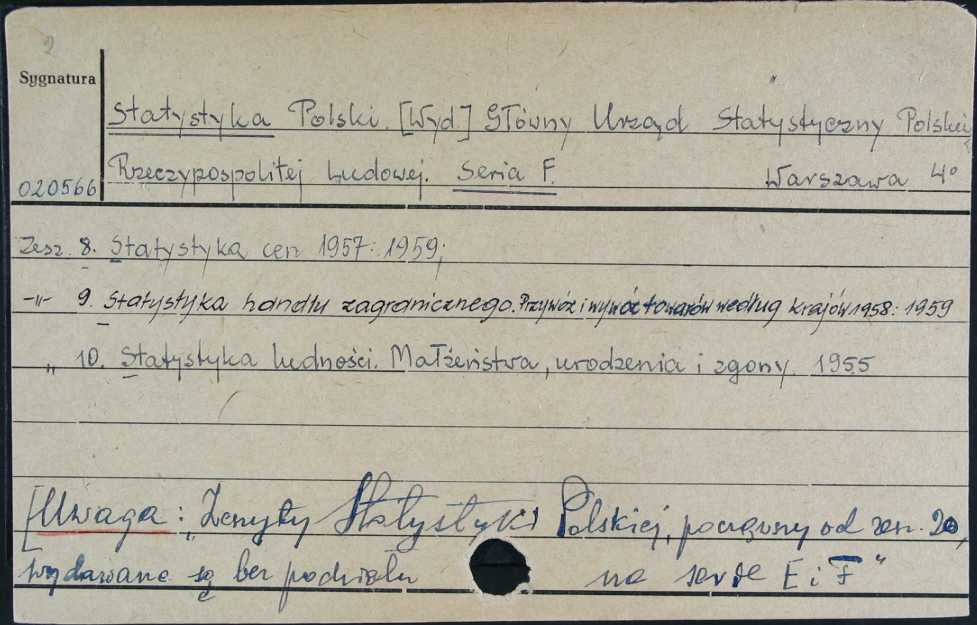 2
Sygnatura
Statystyka Polski. [Wyd.] Główny Urząd Statystyczny Polskiej
020566 Rzeczypospolitej Ludowej. Seria F. Warszawa 4°
Zesz. 8. Statystyka cen 1957: 1959;
-"- 9. Statystyka handlu zagranicznego. Przywóz i wywóz towarów według krajów 1958: 1959
" 10. Statystyka ludności. Małżeństwa, urodzenia i zgony 1955
[Uwaga: „Zeszyty Statystyki Polskiej, począwszy od zesz. 20,
wydawane są bez podziału na serie E i F"